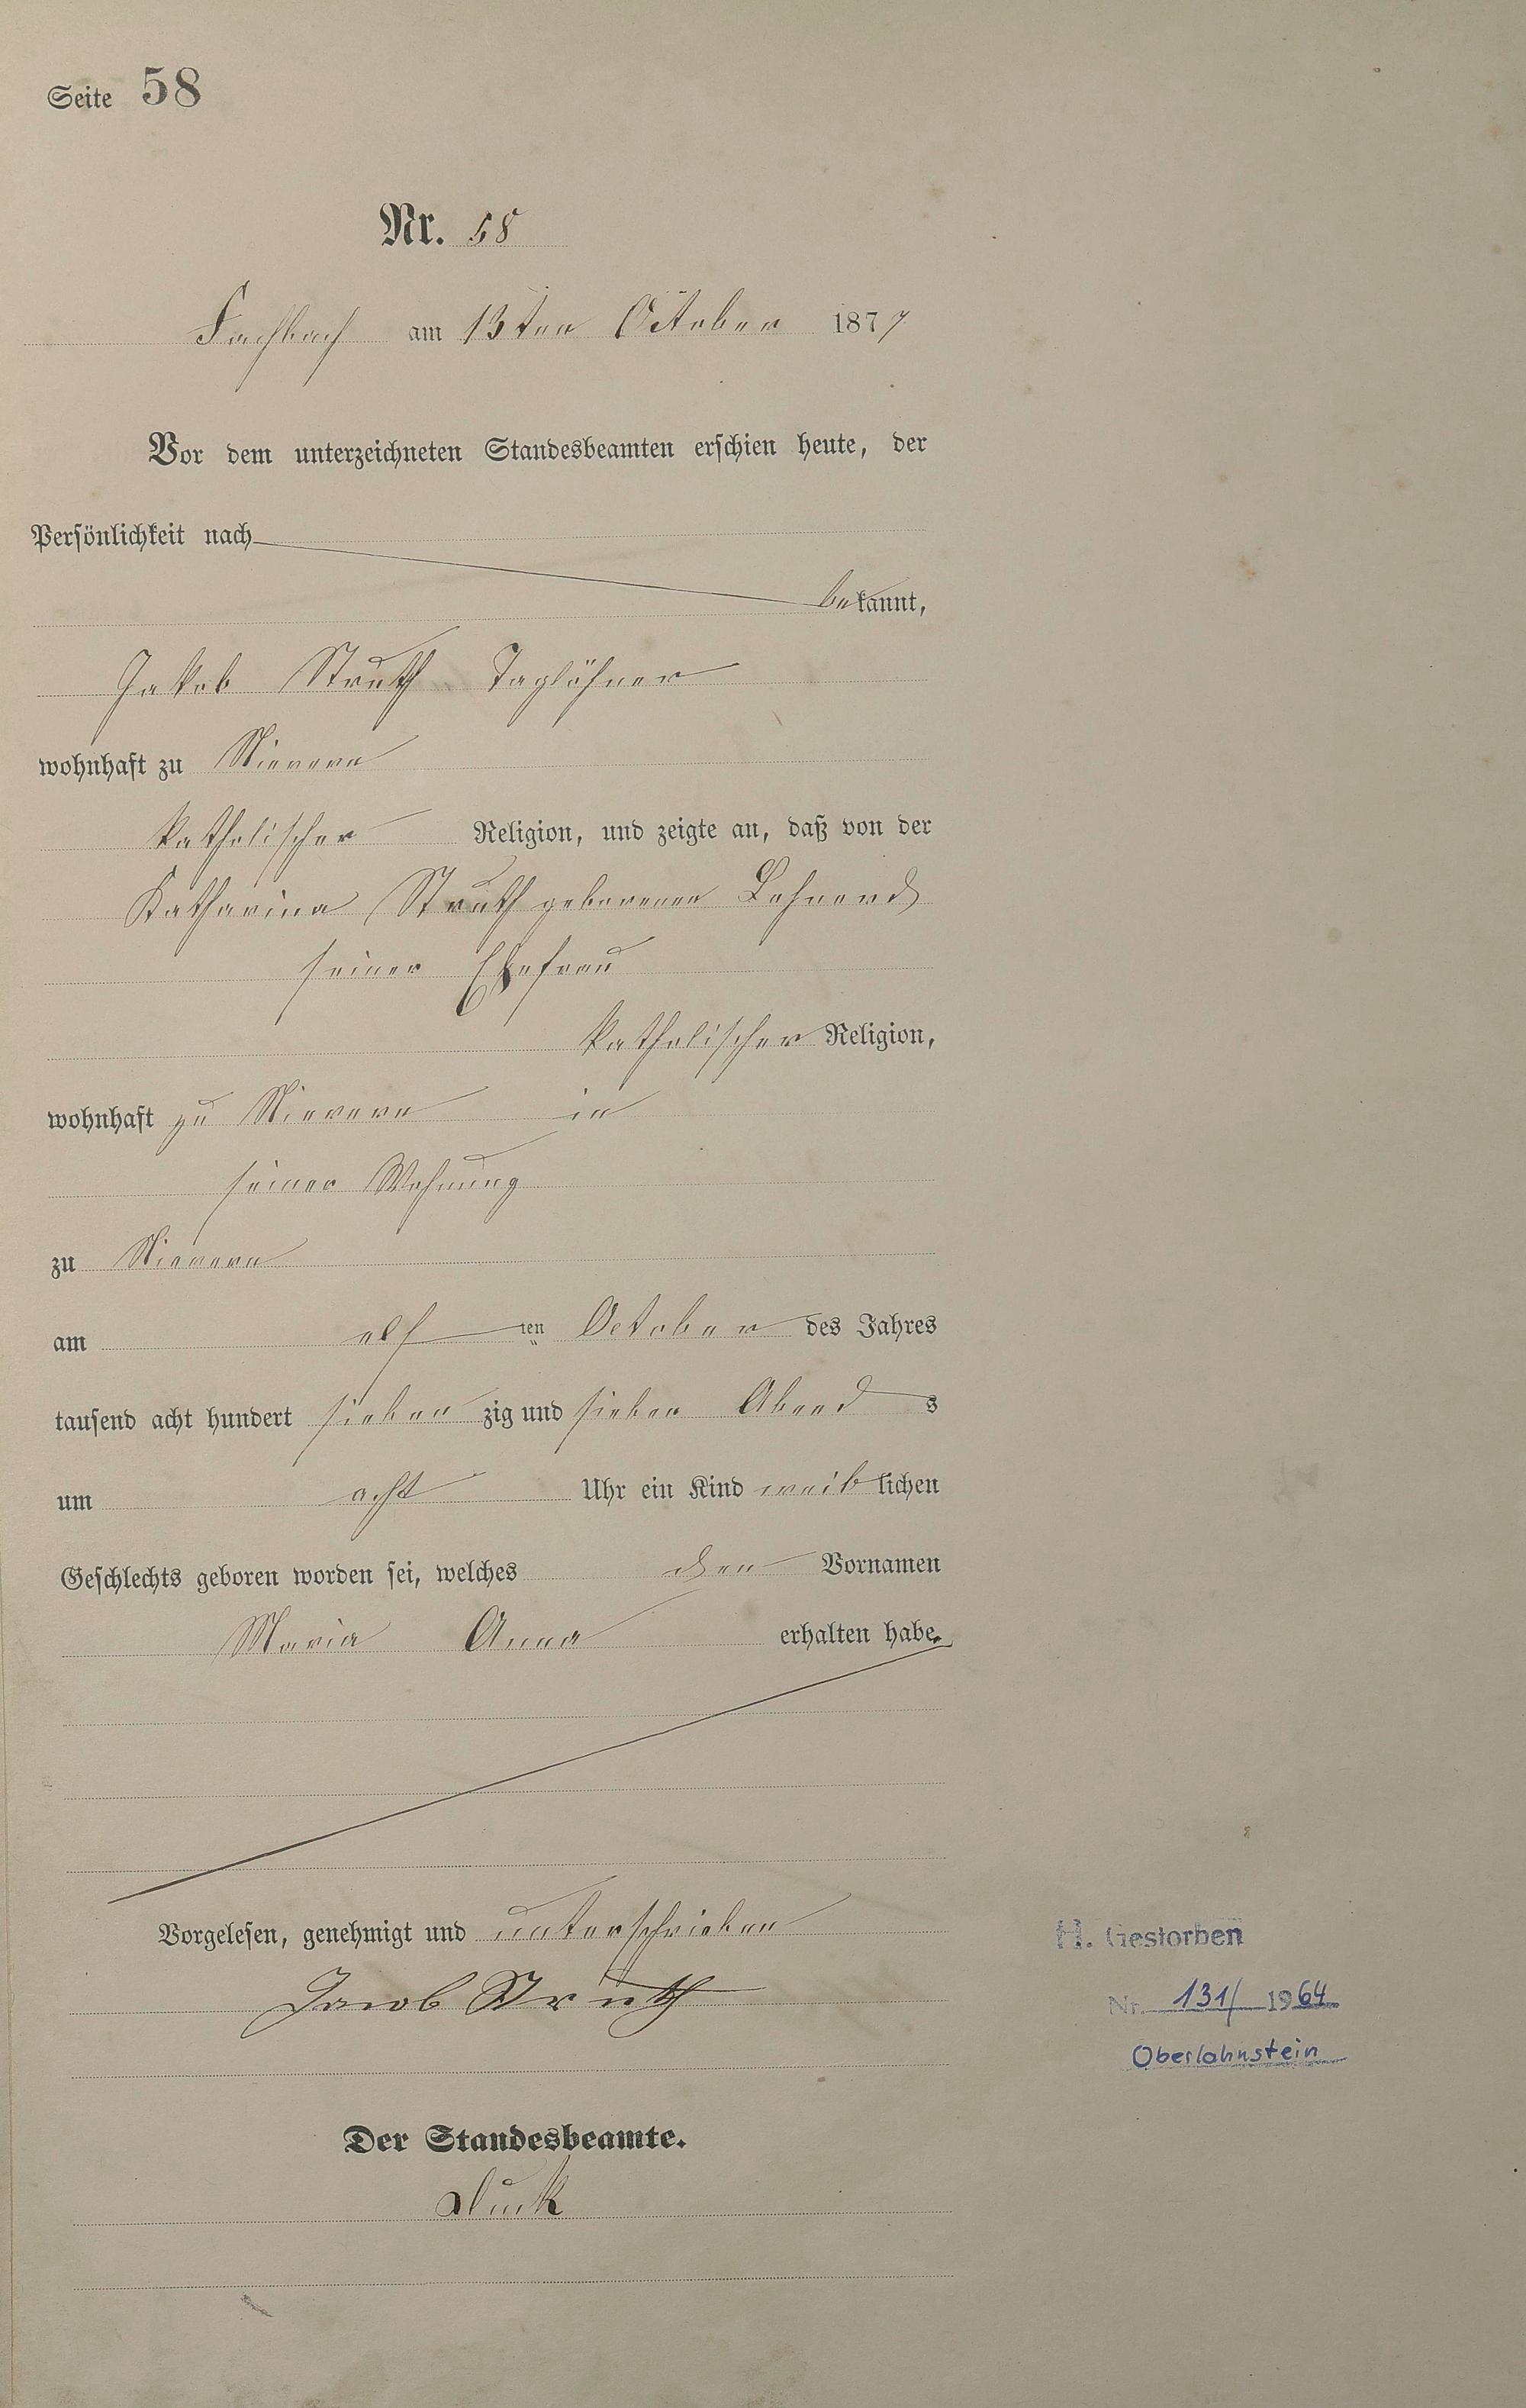 Seite 58
Nr. 58
Fachbach am 13ten October 1877
Vor dem unterzeichneten Standesbeamten erschien heute, der
Persönlichkeit nach
bekannt,
Jakob Struth Taglöhner
wohnhaft zu Nievern
katholischer Religion, und zeigte an, daß von der
Katharina Struth geborenen Lehnerd
seiner Ehefrau
katholischer Religion,
wohnhaft zu Nievern in
seiner Wohnung
zu Nievern
am elf ten October des Jahres
tausend acht hundert sieben zig und sieben Abend s
um acht Uhr ein Kind weiblichen
Geschlechts geboren worden sei, welches den Vornamen
Maria Anna erhalten habe.
Vorgelesen, genehmigt und unterschrieben
Jacob Struth
H. Gestorben
Nr. 131/ 1964
Oberlahnstein
Der Standesbeamte.